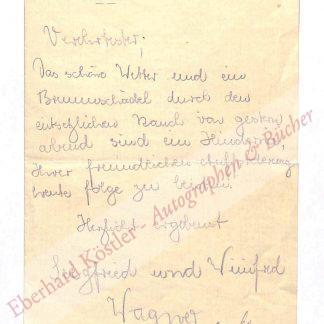 Verehrtester,
Das schöne Wetter und ein
Brummschädel durch den
entsetzlichen Rauch von gestern
abend sind ein Hindernis,
Ihrer freundlichen Aufforderung
heute folge zu leisten.
Herzlichst ergebenst
Siegfried und Winifred
Wagner
Eberhard Köstler - Autographen & Bücher